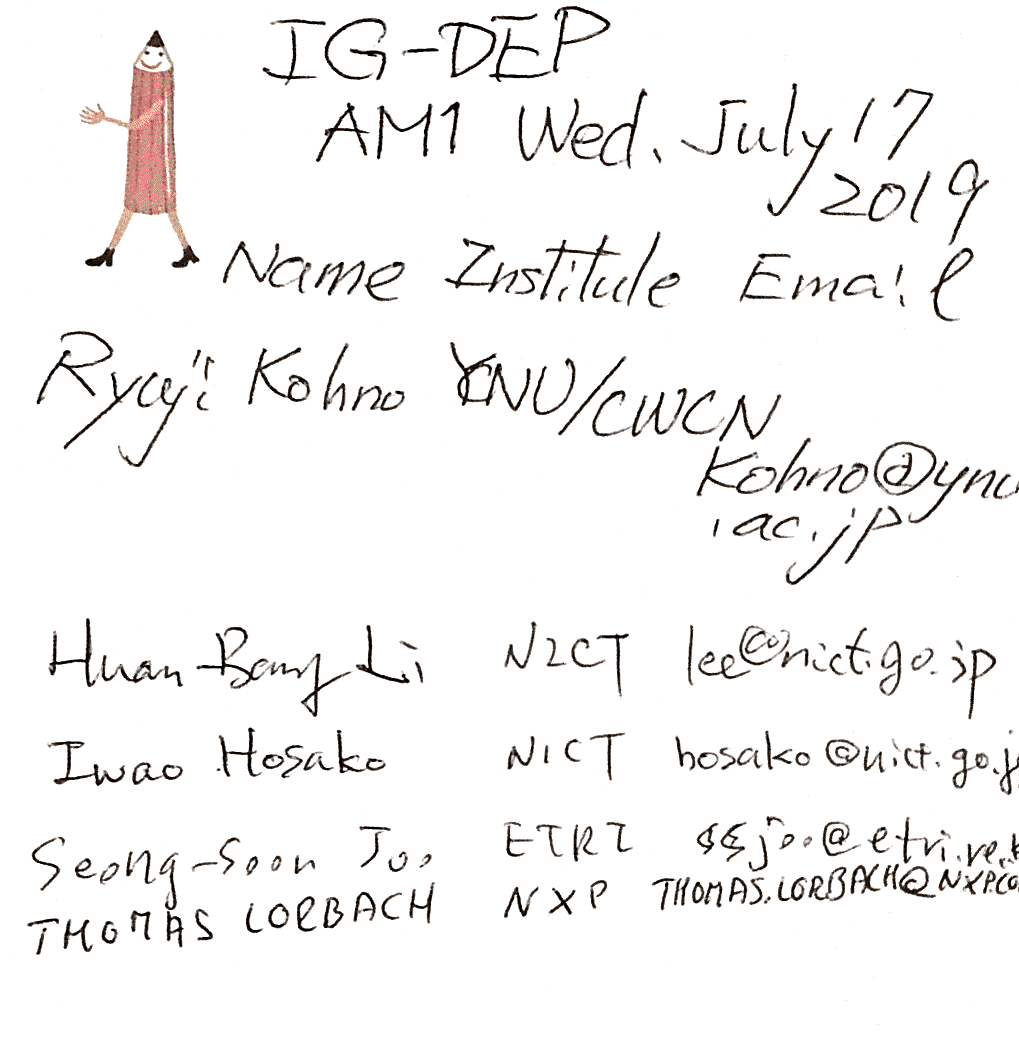 IG-DEP
AM1 Wed. July 17
2019
Name Institute Email
Ryuji Kohno YNU/CWCN
Kohno@ynu
.ac.jp
Huan-Bang Li NICT lee@nict.go.jp
Iwao Hosako NICT hosako@nict.go.j
Seong-Soon Joo ETRI ssjoo@etri.re.k
THOMAS LORBACH NXP THOMAS.LORBACH@NXP.CO